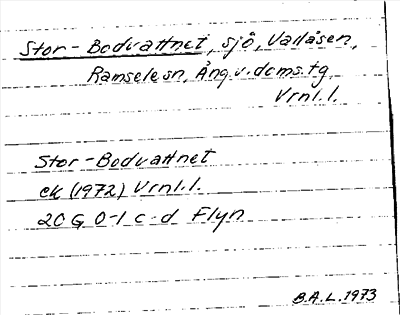 Stor-Bodvattnet, sjö, Vallåsen,
Ramsele sn, Ång. v. dcms. tg.
Vrnl. l.
Stor-Bodvattnet
ek (1972) Vrnl. l.
20 G 0-1 c-d Flyn
B.A.L. 1973